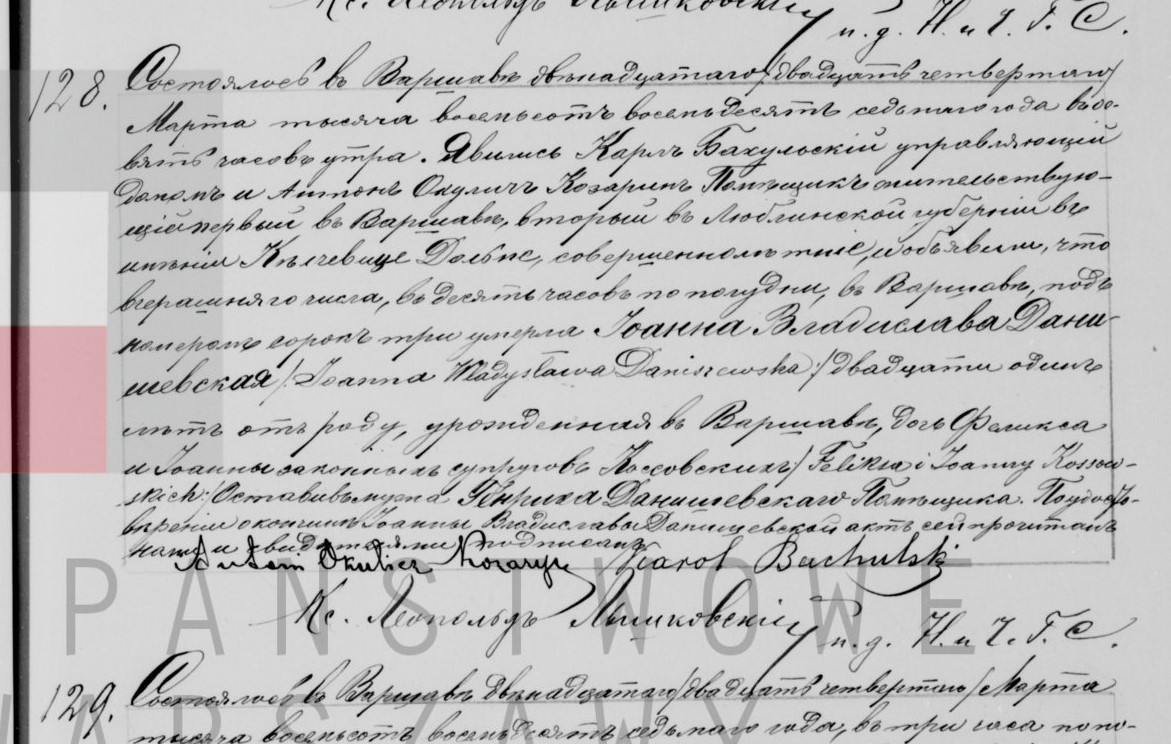 Кс. Леопольдъ Лышковскій и. д. Н. и Ч. Г. С.
128. Состоялось въ Варшавѣ двѣнадцатаго /двадцать четвертаго/
Марта тысяча восемьсотъ восемьдесятъ седьмаго года въ де-
вять часовъ утра. Явились Карлъ Бахульскій управляющій
домомъ и Антонъ Окуличъ Козаринъ Помѣщикъ жительствую-
щій первый въ Варшавѣ, вторый въ Люблинской губерніи въ
имѣніи Кѣлчевице Дольне, совершеннолѣтніе, и объявили, что
вчерашняго числа, въ десять часовъ по полудни, въ Варшавѣ, подъ
номеромъ сорокъ три умерла Іоанна Владислава Дани-
шевская /Joanna Władysława Daniszewska/ двадцати одинъ
лѣтъ отъ роду, урожденная въ Варшавѣ, дочь Феликса
и Іоанны законныхъ супруговъ Коссовскихъ /Feliksa i Joanny Kossow-
skich:/ Оставивъ мужа Генриха Данишевскаго Помѣщика. По удосто-
вѣреніи о кончинѣ Іоанны Владиславы Данишевской актъ сей прочитанъ
нами и свидѣтелями подписанъ
Antoni Okulicz Kozaryn Karol Bachulski
Кс. Леопольдъ Лышковскій и. д. Н. и Ч. Г. С.
PAŃSTWOWE
129. Состоялось въ Варшавѣ двѣнадцатаго /двадцать четвертаго/ Марта
WARSZAWY
тысяча восемьсотъ восемьдесятъ седьмаго года, въ три часа по по-